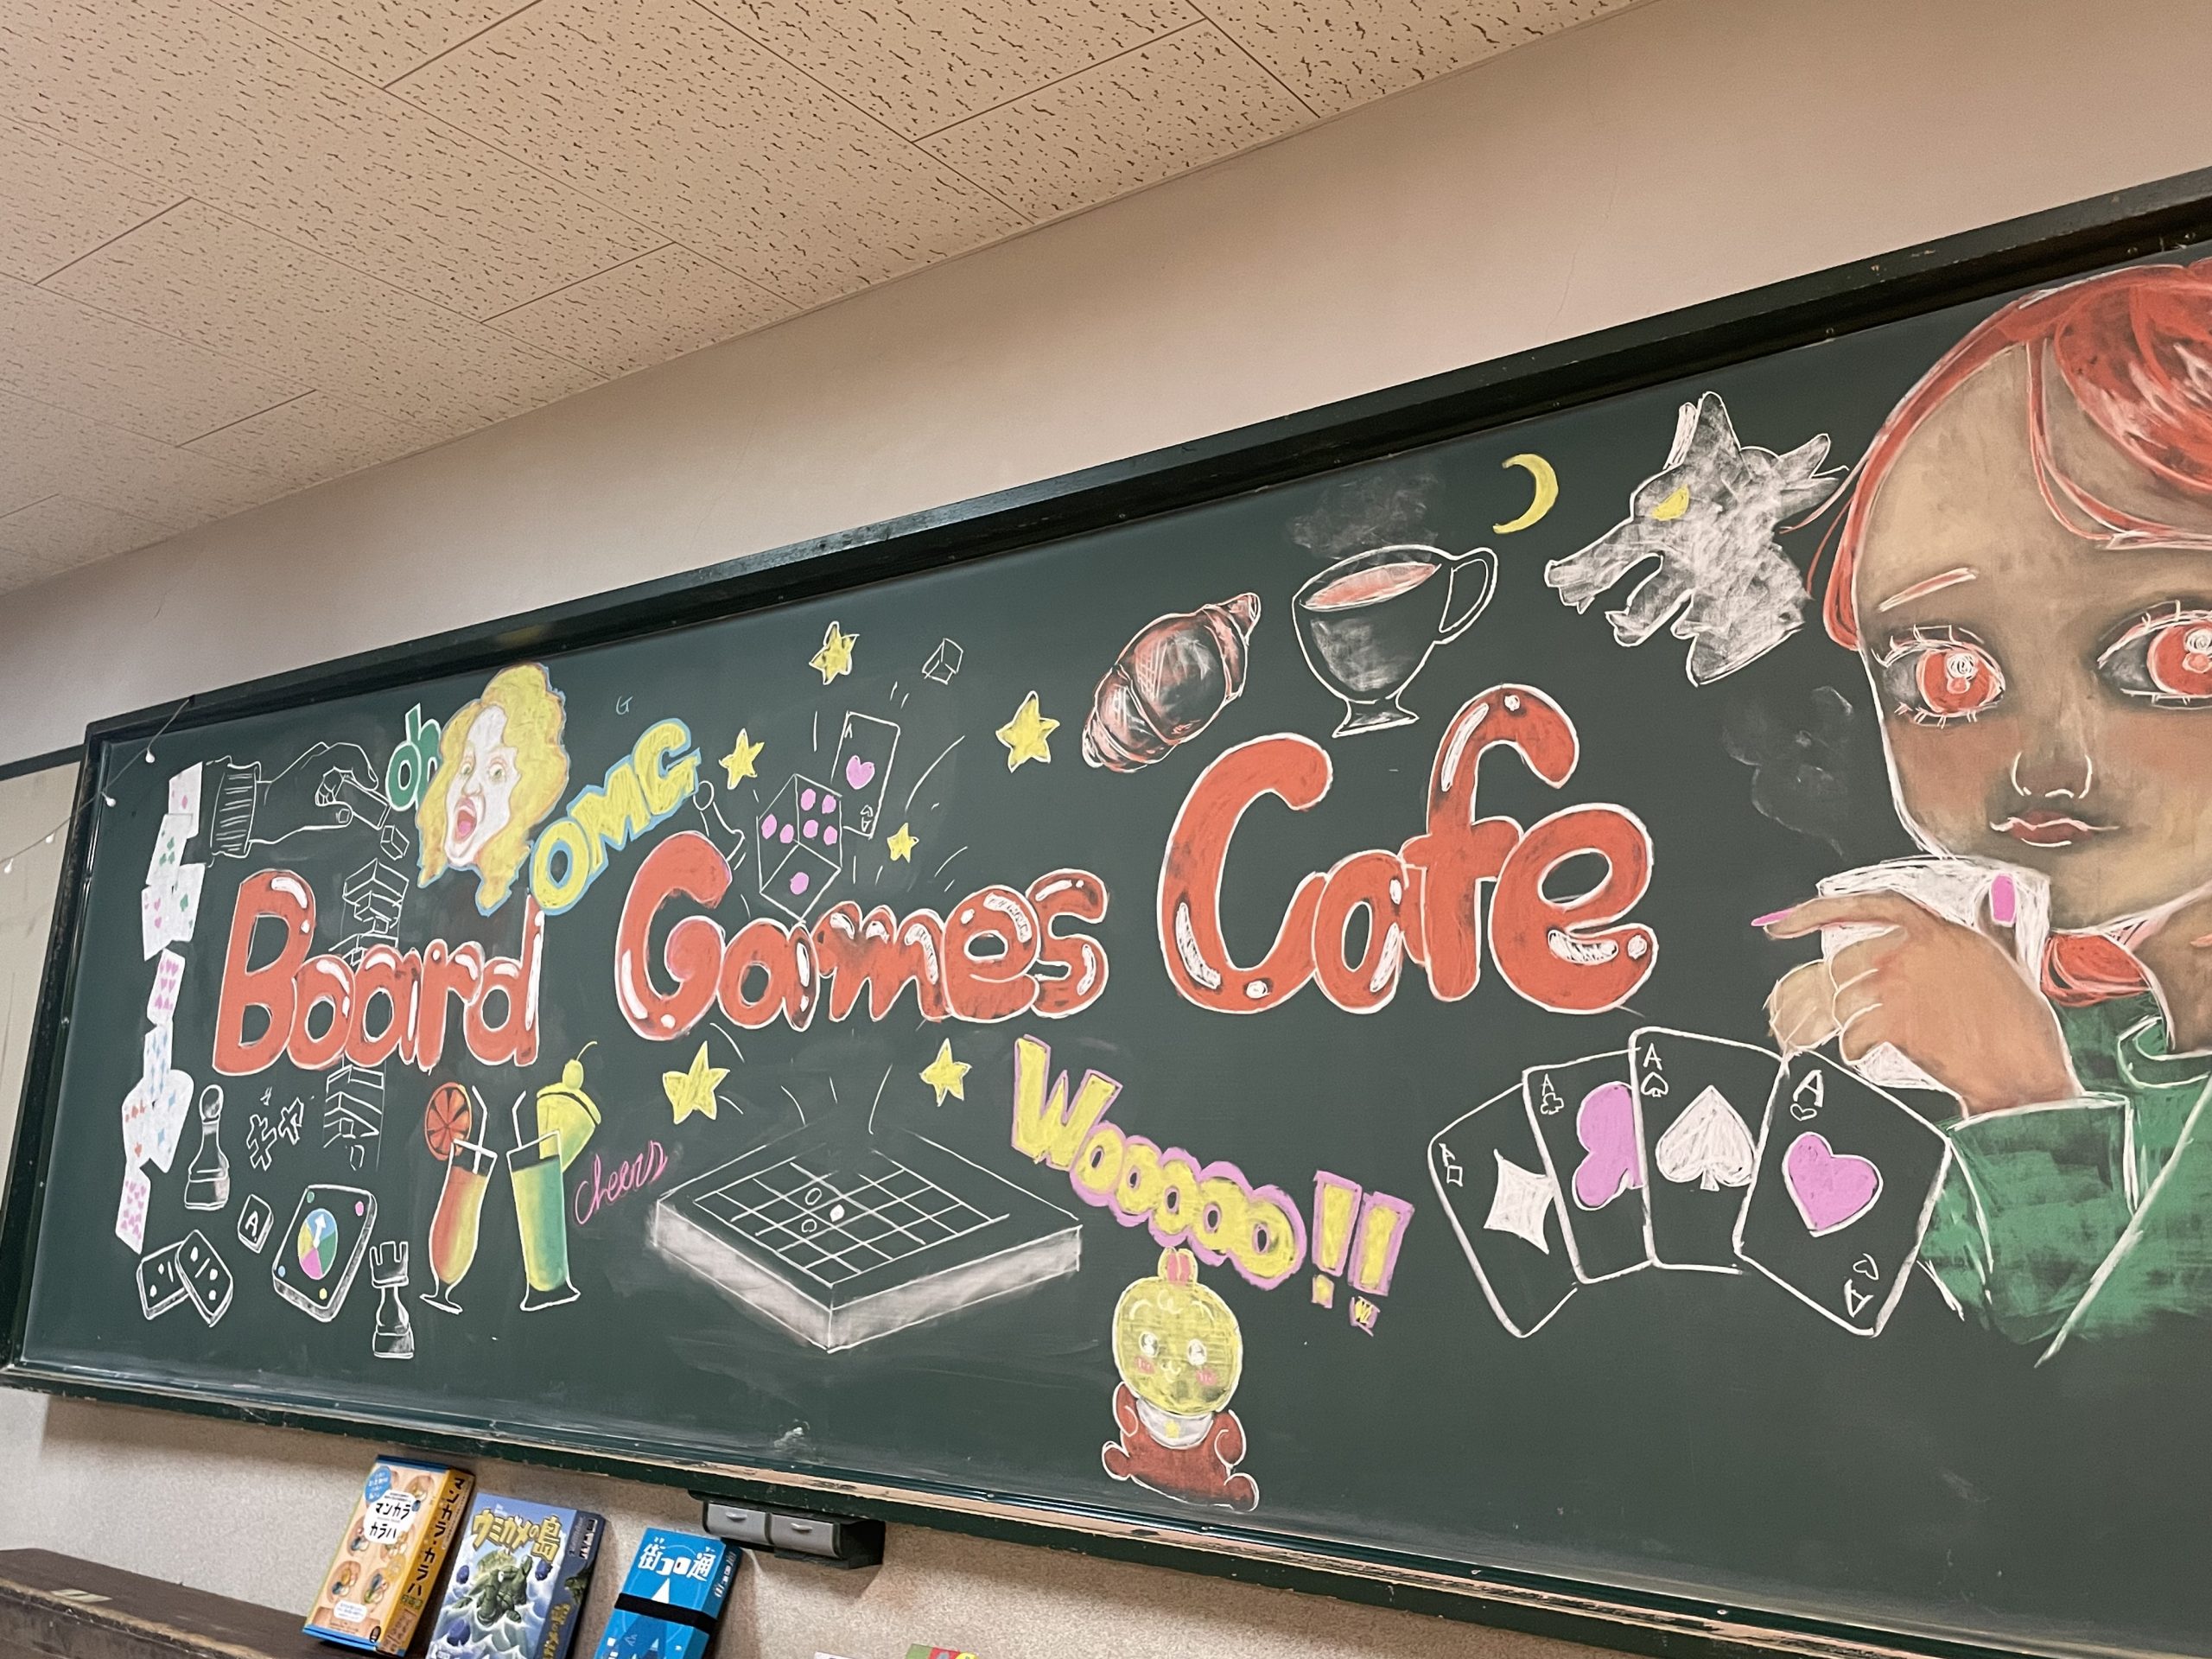 oh
OMG
Board Games Cafe
キャ
cheers
Wooooo!!
A
A
A
A
A
A
A
マンカラ
カラハ
マンカラ・カラハ
ウミガメの島
街コロ通